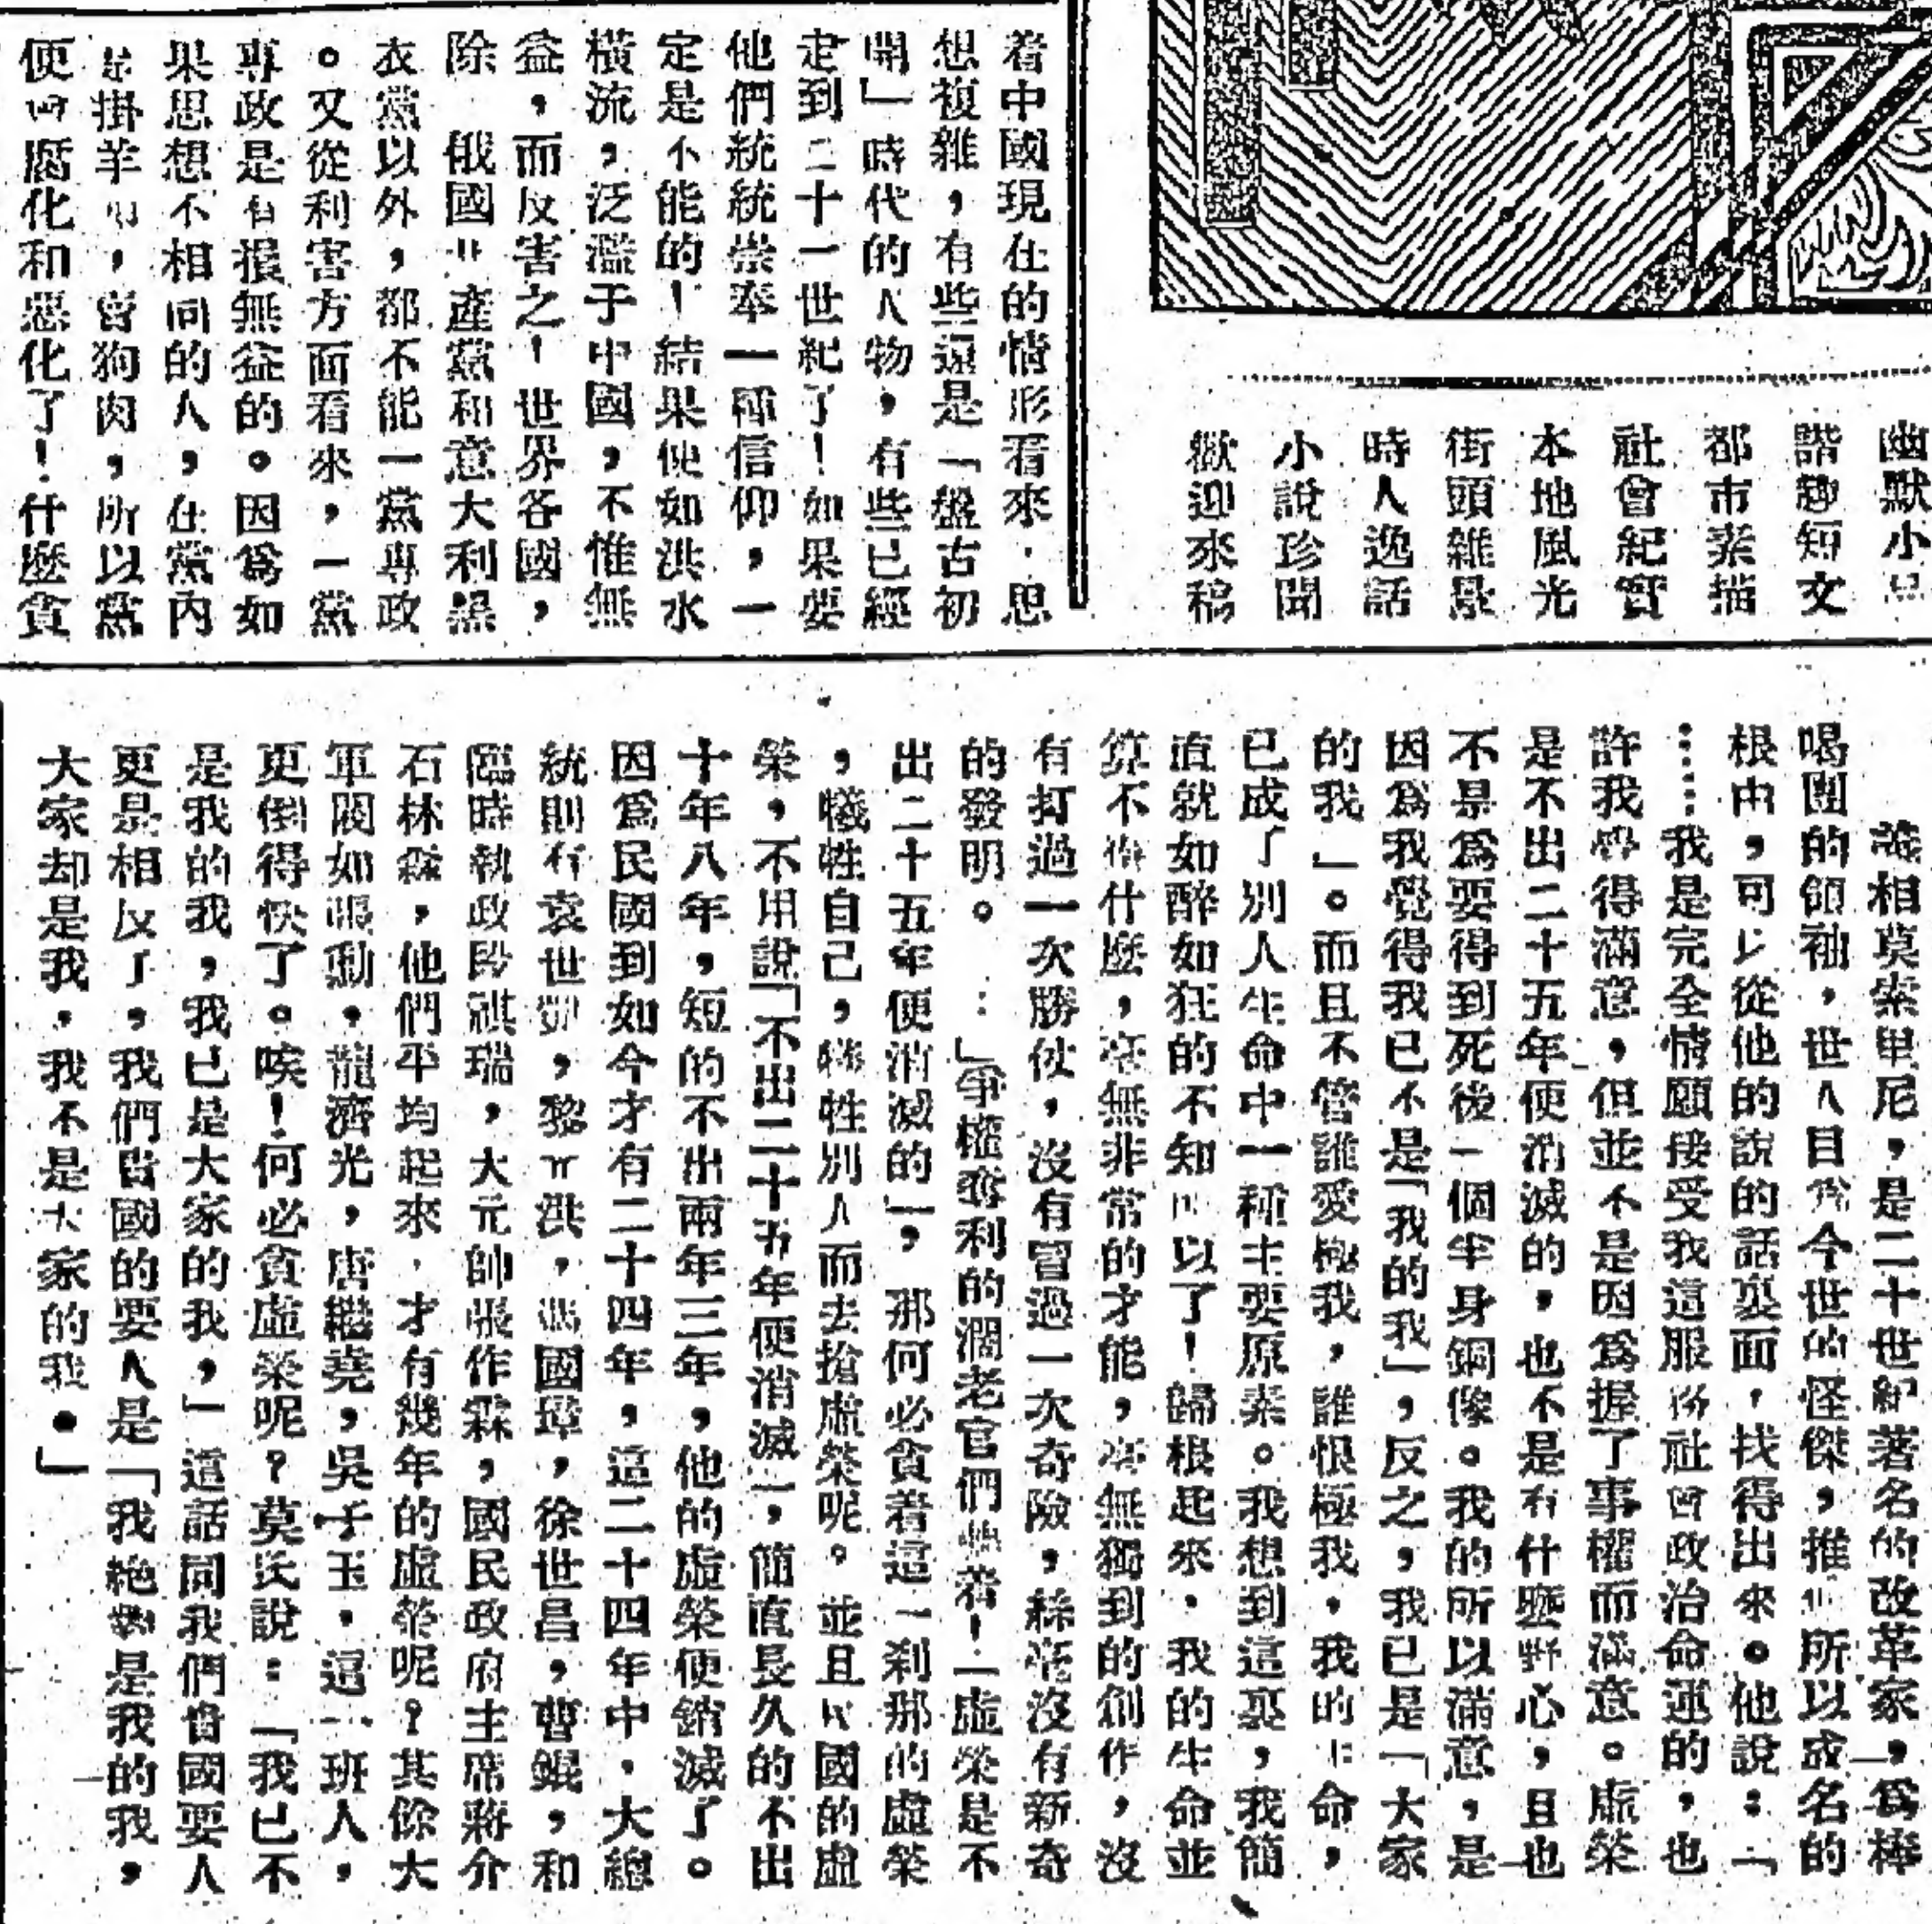 幽默小品
諧趣短文
都市素描
社會紀實
本地風光
街頭雜景
時人逸話
小說珍聞
歡迎來稿
着中國現在的情形看來，思
想複雜，有些還是「盤古初
開」時代的人物，有些已經
走到二十一世紀了！如果要
他們統統崇奉一種信仰，一
定是不能的！結果便如洪水
橫流，泛濫于中國，不惟無
益，而反害之！世界各國，
除 俄國共產黨和意大利黑
衣黨以外，都不能一黨專政
。又從利害方面看來，一黨
專政是有損無益的。因爲如
果思想不相同的人，在黨內
掛羊，賣狗肉，所以黨
便腐化和惡化了！什麼貪
相莫索里尼，是二十世紀著名的改革家，爲棒
喝團的領袖，世人目爲今世的怪傑，推所以成名的
根由，可以從他的說的話裏面，找得出來。他說：「
……我是完全情願接受我這服務社會政治命運的，也
許我覺得滿意，但並不是因爲握了事權而滿意。虛榮
是不出二十五年便消滅的，也不是有什麼野心，且也
不是爲要得到死後一個半身銅像。我的所以滿意，是
因爲我覺得我已不是「我的我」，反之，我已是「大家
的我」。而且不管誰愛極我，誰恨極我，我的生命，
已成了別人生命中一種主要原素。我想到這裏，我簡
直就如醉如狂的不知所以了！歸根起來，我的生命並
算不得什麼，毫無非常的才能，毫無獨到的創作，沒
有打過一次勝仗，沒有冒過一次奇險，絲毫沒有新奇
的發明。…」爭權奪利的濶老官們聽着！「虛榮是不
出二十五年便消滅的」，那何必貪着這一刹那的虛榮
，犧牲自己，犧牲別人而去搶虛榮呢。並且民國的虛
榮，不用說「不出二十五年便消滅」，簡直長久的不出
十年八年，短的不出兩年三年，他的虛榮便銷滅了。
因爲民國到如今才有二十四年，這二十四年中，大總
統則有袁世凱，黎元洪，馮國璋，徐世昌，曹錕，和
臨時執政段祺瑞，大元帥張作霖，國民政府主席蔣介
石林森，他們平均起來，才有幾年的虛榮呢？其餘大
軍閥如張勳，龍濟光，唐繼堯，吳子玉，這一班人，
更倒得快了。唉！何必貪虛榮呢？莫氏說：「我已不
是我的我，我已是大家的我，」這話同我們當國要人
更是相反了，我們當國的要人是「我絶對是我的我，
大家却是我，我不是大家的我。」